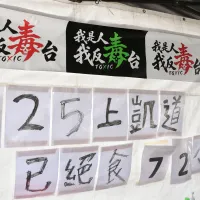 我是人
我反毒台
TOXIC
我是人
我反毒台
TOXIC
我是人
我反毒台
TOXIC
25上凱道
已絕食72